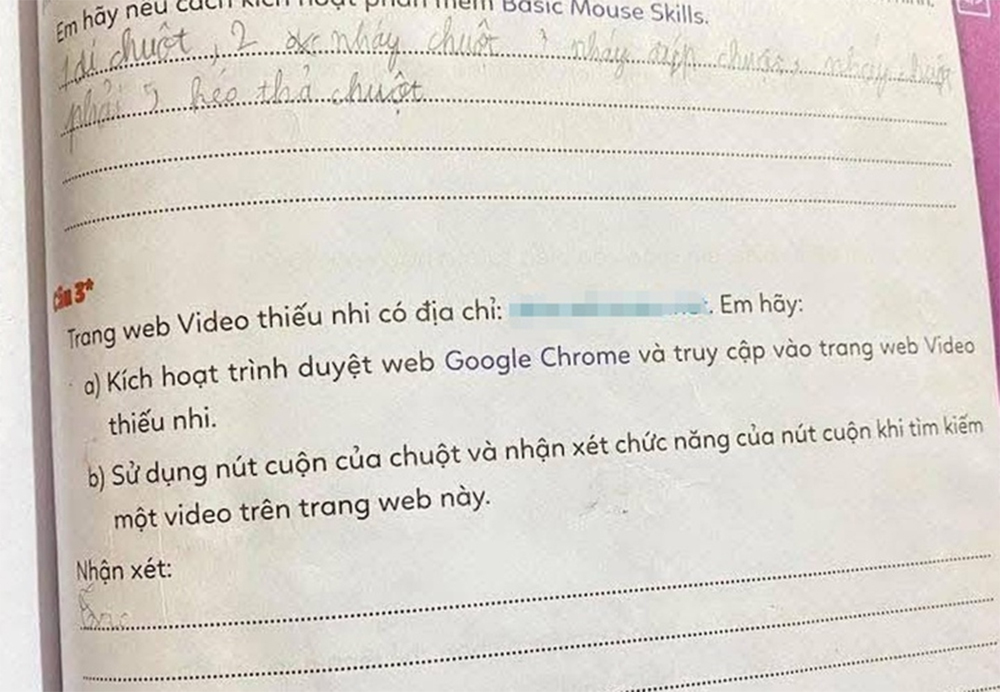 Em hãy nêu cách kích hoạt phần mềm Basic Mouse Skills.
1 di chuột, 2 nháy chuột, nháy đúp chuột, nháy chuột
phải 5 kéo thả chuột
Câu 3*
Trang web Video thiếu nhi có địa chỉ: . Em hãy:
a) Kích hoạt trình duyệt web Google Chrome và truy cập vào trang web Video
thiếu nhi.
b) Sử dụng nút cuộn của chuột và nhận xét chức năng của nút cuộn khi tìm kiếm
một video trên trang web này.
Nhận xét: